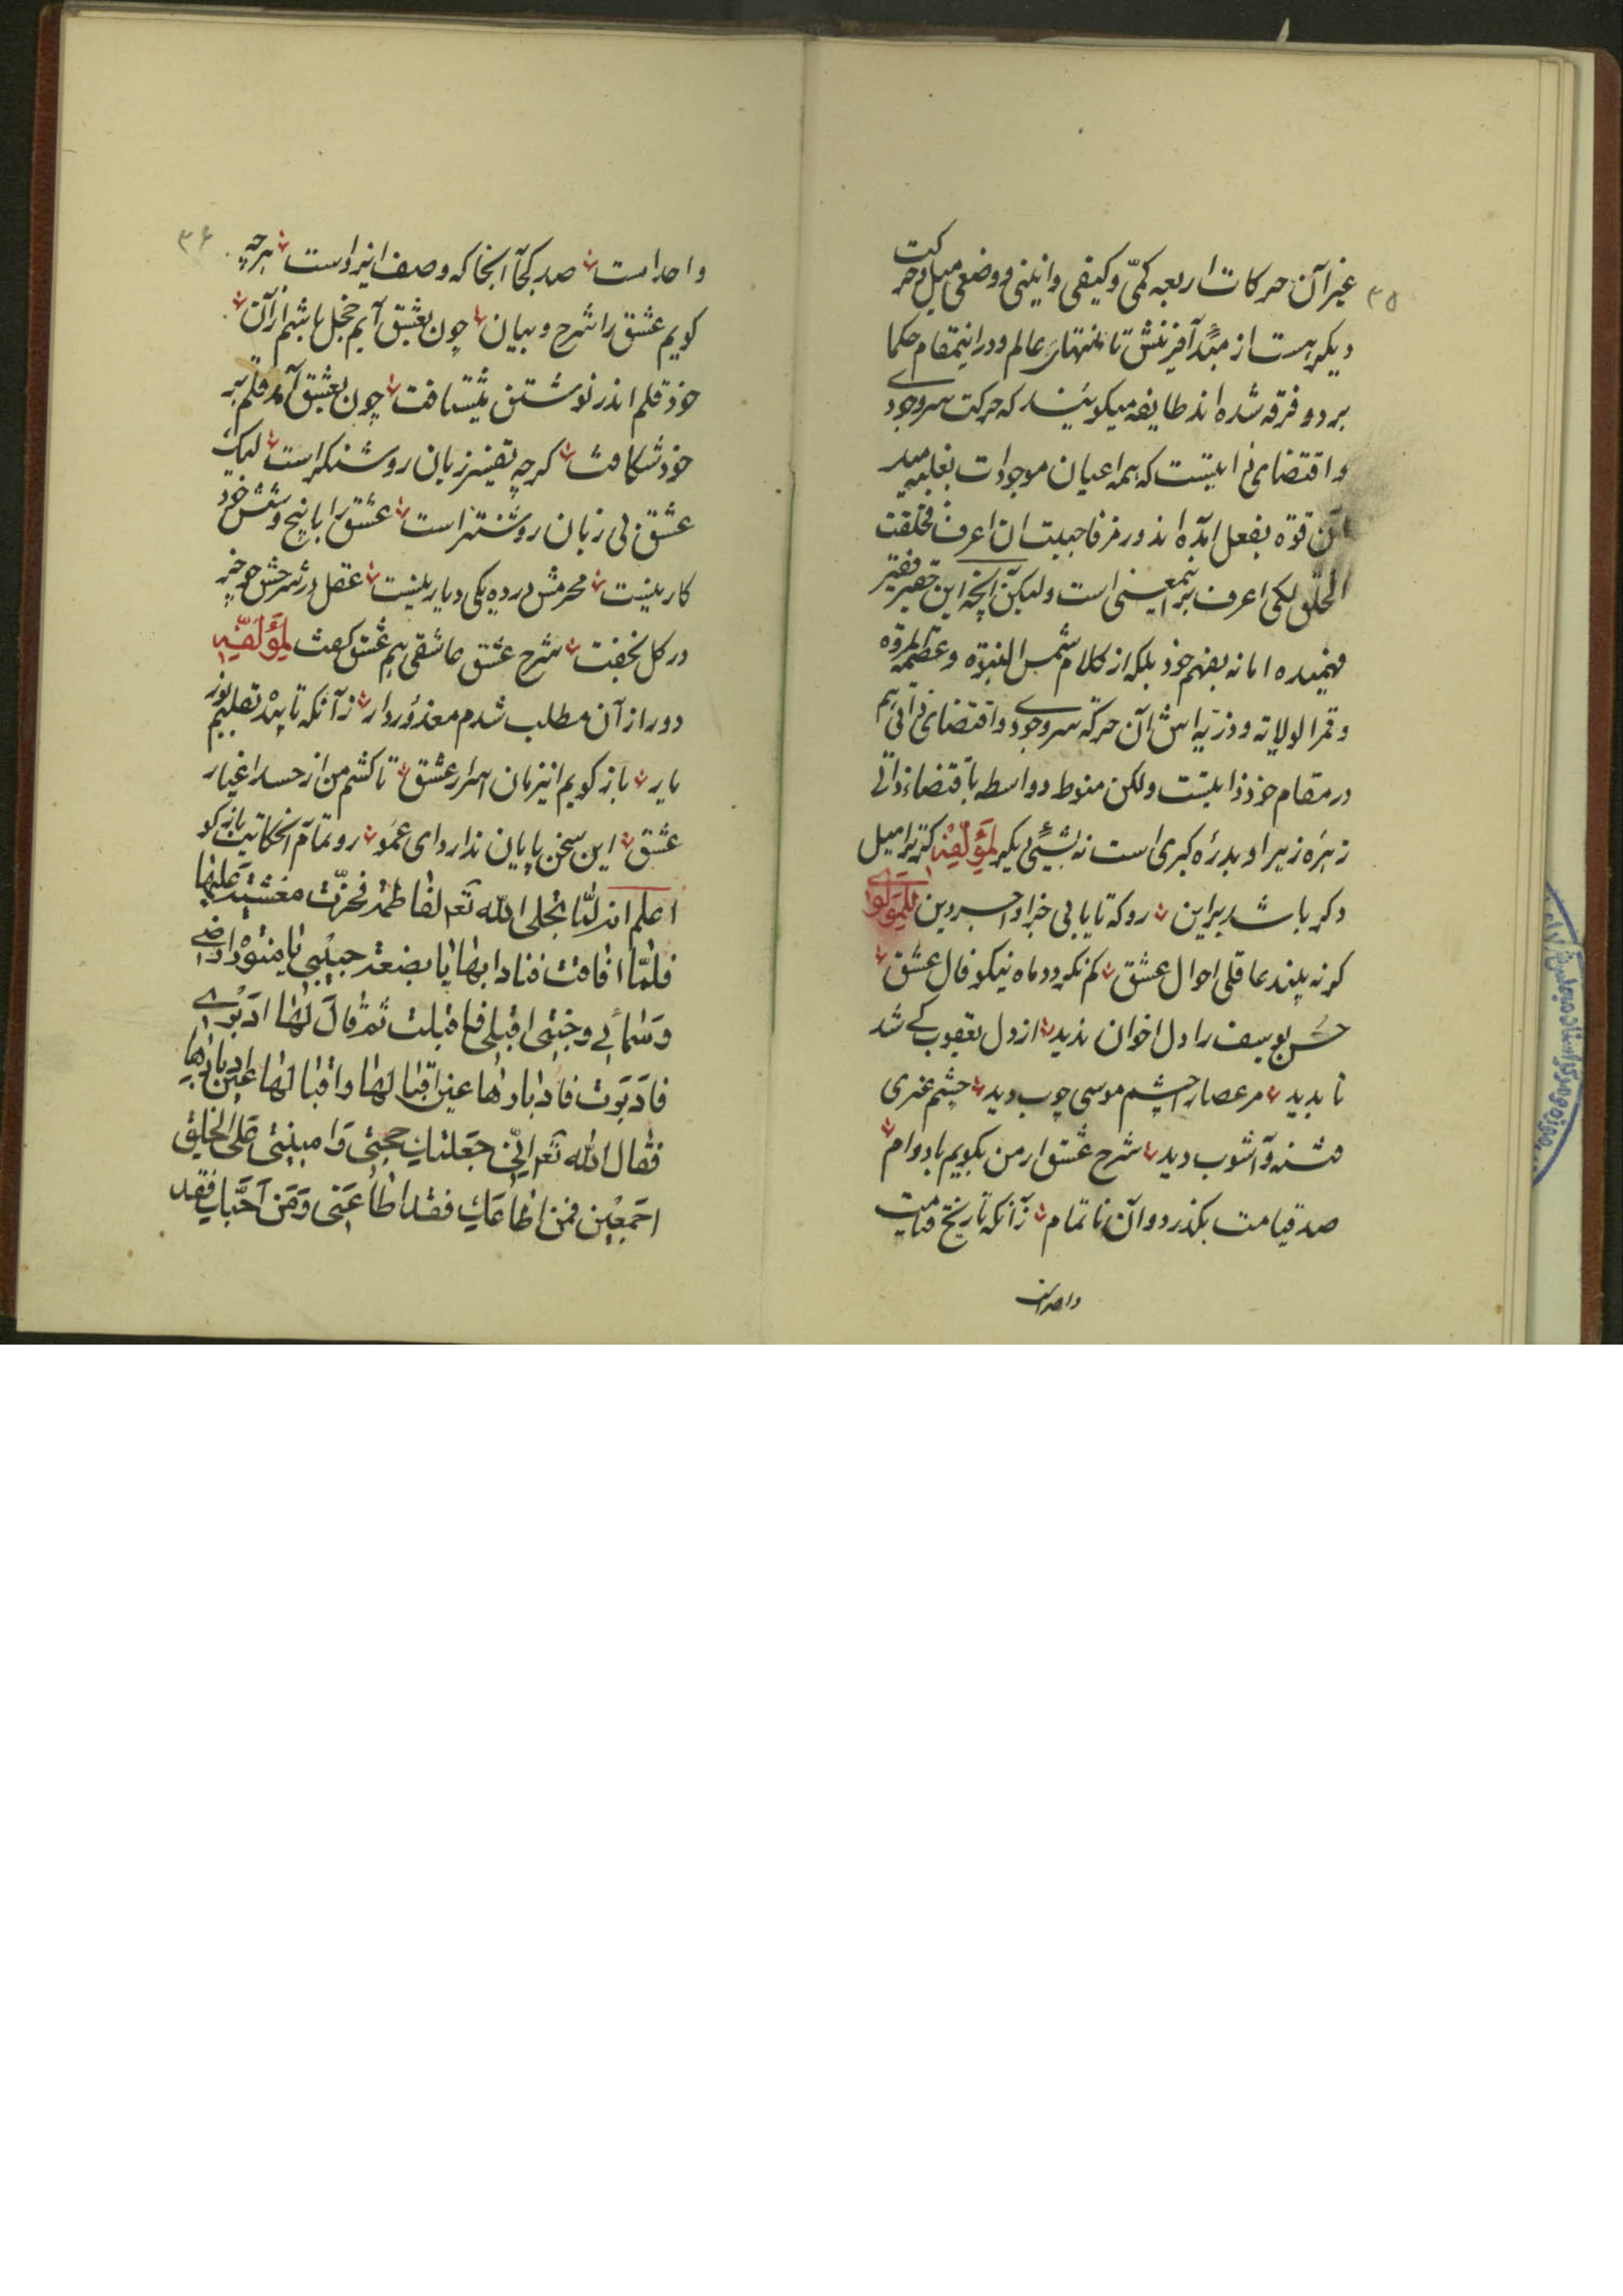 ۳۵
غیر آن حرکات اربعه کمّی و کیفی و اینی و وضعی میل و حرکت
دیگر هست از مبدء آفرینش تا منتهای عالم و در اینمقام حکما
بر دو فرقه شده اند طایفه میکویند که حرکت سر وجودی
و اقتضای ذاتیست که همه اعیان موجودات
آن قوه بفعل آمده اند و رمز فاحببت ان اعرف فخلقت
الخلق لکی اعرف نیز اینمعنی است ولیکن آنچه این حقیر فقیر
فهمیده اما نه بفهم خود بلکه از کلام شمس النبوة و عصمة المروة
و قمر الولایه و ذریه اش آن حرکة سر وجودی و اقتضای ذاتی هم
در مقام خود ذاتیست ولکن منوط و واسطه باقتضاء ذاتی
زهره زهرا و بدره کبری است نه بشیئ دیگر لمؤلفه کر ترا میل
دکر باشد براین رو که تا یابی خبر او احسر دین للمولوی
کر نه بیند عاقلی احوال عشق کم نکردد ماه نیکو فال عشق
حسن یوسف را دل اخوان ندید از دل یعقوب کی شد
نابدید مر عصا را چشم موسی چوب دید چشم غیری
فتنه و آشوب دید شرح عشق ار من بکویم بادوام
صد قیامت بکذرد و آن ناتمام زآنکه تاریخ قیامت
واحد است
۳۶
واحد است صد کجا آنجا که وصف ایزد است هرچه
کویم عشق را شرح و بیان چون بعشق آیم خجل باشم از آن
خود قلم اندر نوشتن میشتافت چون بعشق آمد قلم بر
خود شکافت کرچه تفسیر زبان روشنکر است لیک
عشق بی زبان روشنتر است عشق را با پنج و شش خود
کار نیست محرمش در ده یکی دیار نیست عقل در شرحش چو خر
در کل نخفت شرح عشق عاشقی هم عشق کفت لمؤلفه
دور از آن مطلب شدم معذور دار زآنکه تابید تقلیبم نور
یار باز کویم اینزمان اسرار عشق تا کشم من از حسد اغیار
عشق این سخن پایان ندارد ای عمو رو تمام آنحکایت بازکو
اعلم انه لما تجلی الله تع لفاطمة فخرّت مغشیة علیها
فلمّا افاقت فنادا بها یا بضعة حبیبی یا منوّر ارضی
وسمائی وجنتی اقبلی فاقبلت ثم قال لها ادبری
فادبرت فادبارها عین اقبالها واقبالها عین ادبارها
فقال الله تع انّی جعلتک حجتی وامینتی علی الخلق
اجمعین فمن اطاعک فقد اطاعنی ومن احبّک فقد